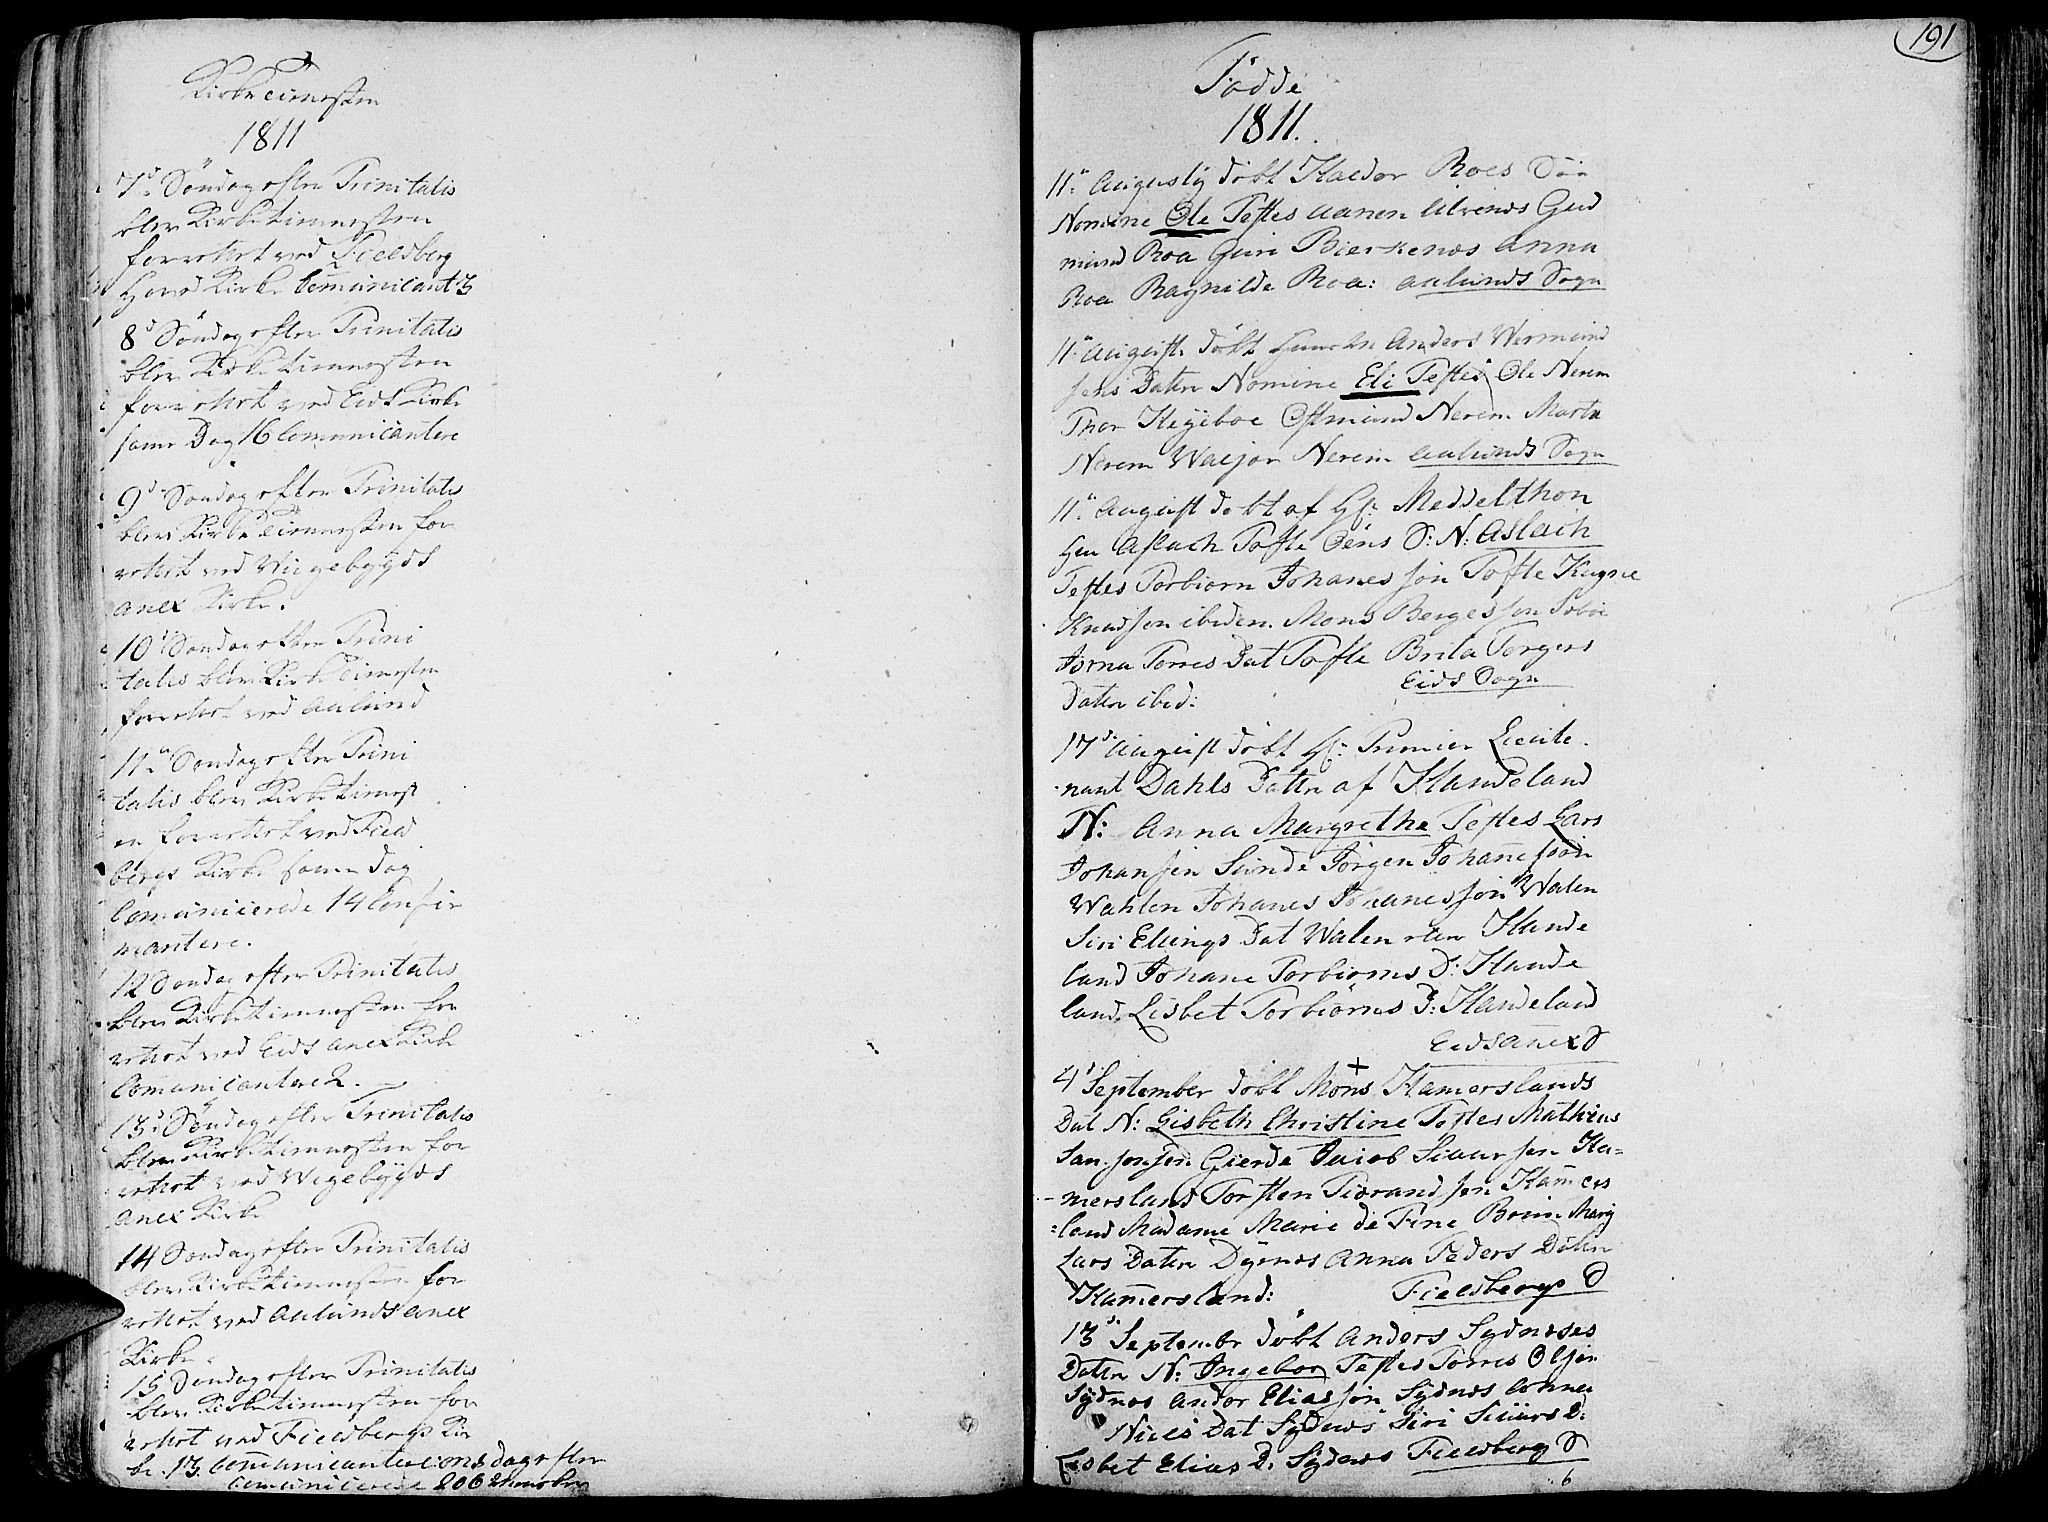 Kirketienesten
1811
7d Søndag efter Trinitatis
blev Kirketienesten
forrettet ved Fieldberg
Hoved Kirke Comunicant 3
8d Søndag efter Trinitatis
blev Kirketienesten
forrettet ved Eids Kirke
same Dag 16 Comunicantere
9d Søndag efter Trinitatis
blev Kirketienesten for
rettet ved Wigebÿgds
anex Kirke.
10d Søndag efter Trini
tatis blev Kirketienesten
forrettet ved Aalund
11d Søndag efter Trini
tatis blev Kirketienest
en forrettet ved Field
bergs Kirke same Dag
Comunicerede 14 Confir
mantere.
12 Søndag efter Trinitatis
blev Kirketienesten for
rettet ved Eids anex Kirke
Comunicantere 2.
13d Søndag efter Trinitatis
blev Kirketienesten for
rettet ved Wigebÿgds
anex Kirke
14 Søndag efter Trinitatis
blev Kirketienesten for
rettet ved Aalunds anex
Kirke.
15 Søndag efter Trinitatis
blev Kirketienesten for
rettet ved Fieldbergs Kir
ke. 13 Comunicantere dag efter
Comunicerede 206
191
Fødde
1811.
11. Augusty døbt Haldor Roes Søn
Nomine Ole Testes Aanen Gud
mund Roa Guri Bierkenes Anna
Roa Ragnilde Roa: Aalunds Sogn
11. August døbt Anders Wermund
sens Datter Nomine Eli Testes Ole Nerem
Thor Heÿeboe Ostmund Nerem Marta
Nerem Nerem Aalunds Sogn
11. August døbt af Hr. Meddelthon
Aslach Tofte S: N: Aslach
Testes Torbiorn Johanes søn Tofte
Knudsøn ibiden. Mons Berges søn
Torres Dat Tofte Brita Torgers
Datter ibid: Eids Sogn
17d August døbt Hr. Premier Lieute
nant Dahls Datter af Handeland
N: Anna Margrethe Testes Lars
Johansen Sunde Jørgen Johannesøn
Wahlen Johanes Johanes søn Walen
Siri Ellings Dat Walen Hande
land Johane Torbiørns D: Hande
land. Lisbet Torbiørns D: Handeland
Eids anex S
4d September døbt Mons Hamerslands
Dat N: Lisbeth Christine Testes Mathias
Gierde Jacob Siursen Ha-
mersland Torsten sen Hamers
land Madame Marie de Fine Marg
Lars Datter Anna Peders Datter
Hamersland: Fieldbergs S
13d September døbt Anders Sydneses
Datter N: Ingebor Testes Torres Olsøn
Sÿdnes Andor Elias søn Sÿdnes Anne
Niels Dat Sÿdnes Siri Siurs D:
Lisbet Elias D. Sydnes Fieldberg S
6